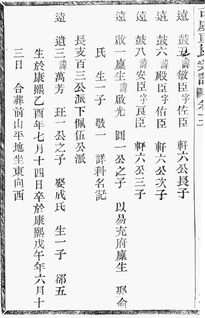 遠 鼓五 字 敏臣 字 佐臣 軒六公長子
遠 鼓六 字 殿臣 字 佑臣 軒六公次子
遠 鼓八 字 安臣 字 良臣 軒六公三子
遠 啟一 廩生 諱 啟光 劉一公之子 以易充府廩生 娶俞
氏 生一子 敬一 詳科名記
長支百三公派下佩伍公派
遠 遺三 諱 萬芳 玨一公之子 娶成氏 生一子 郤五
生於康熙乙酉年七月十四日卒於康熙戊午年六月十
三日 合葬前山平地坐東向西